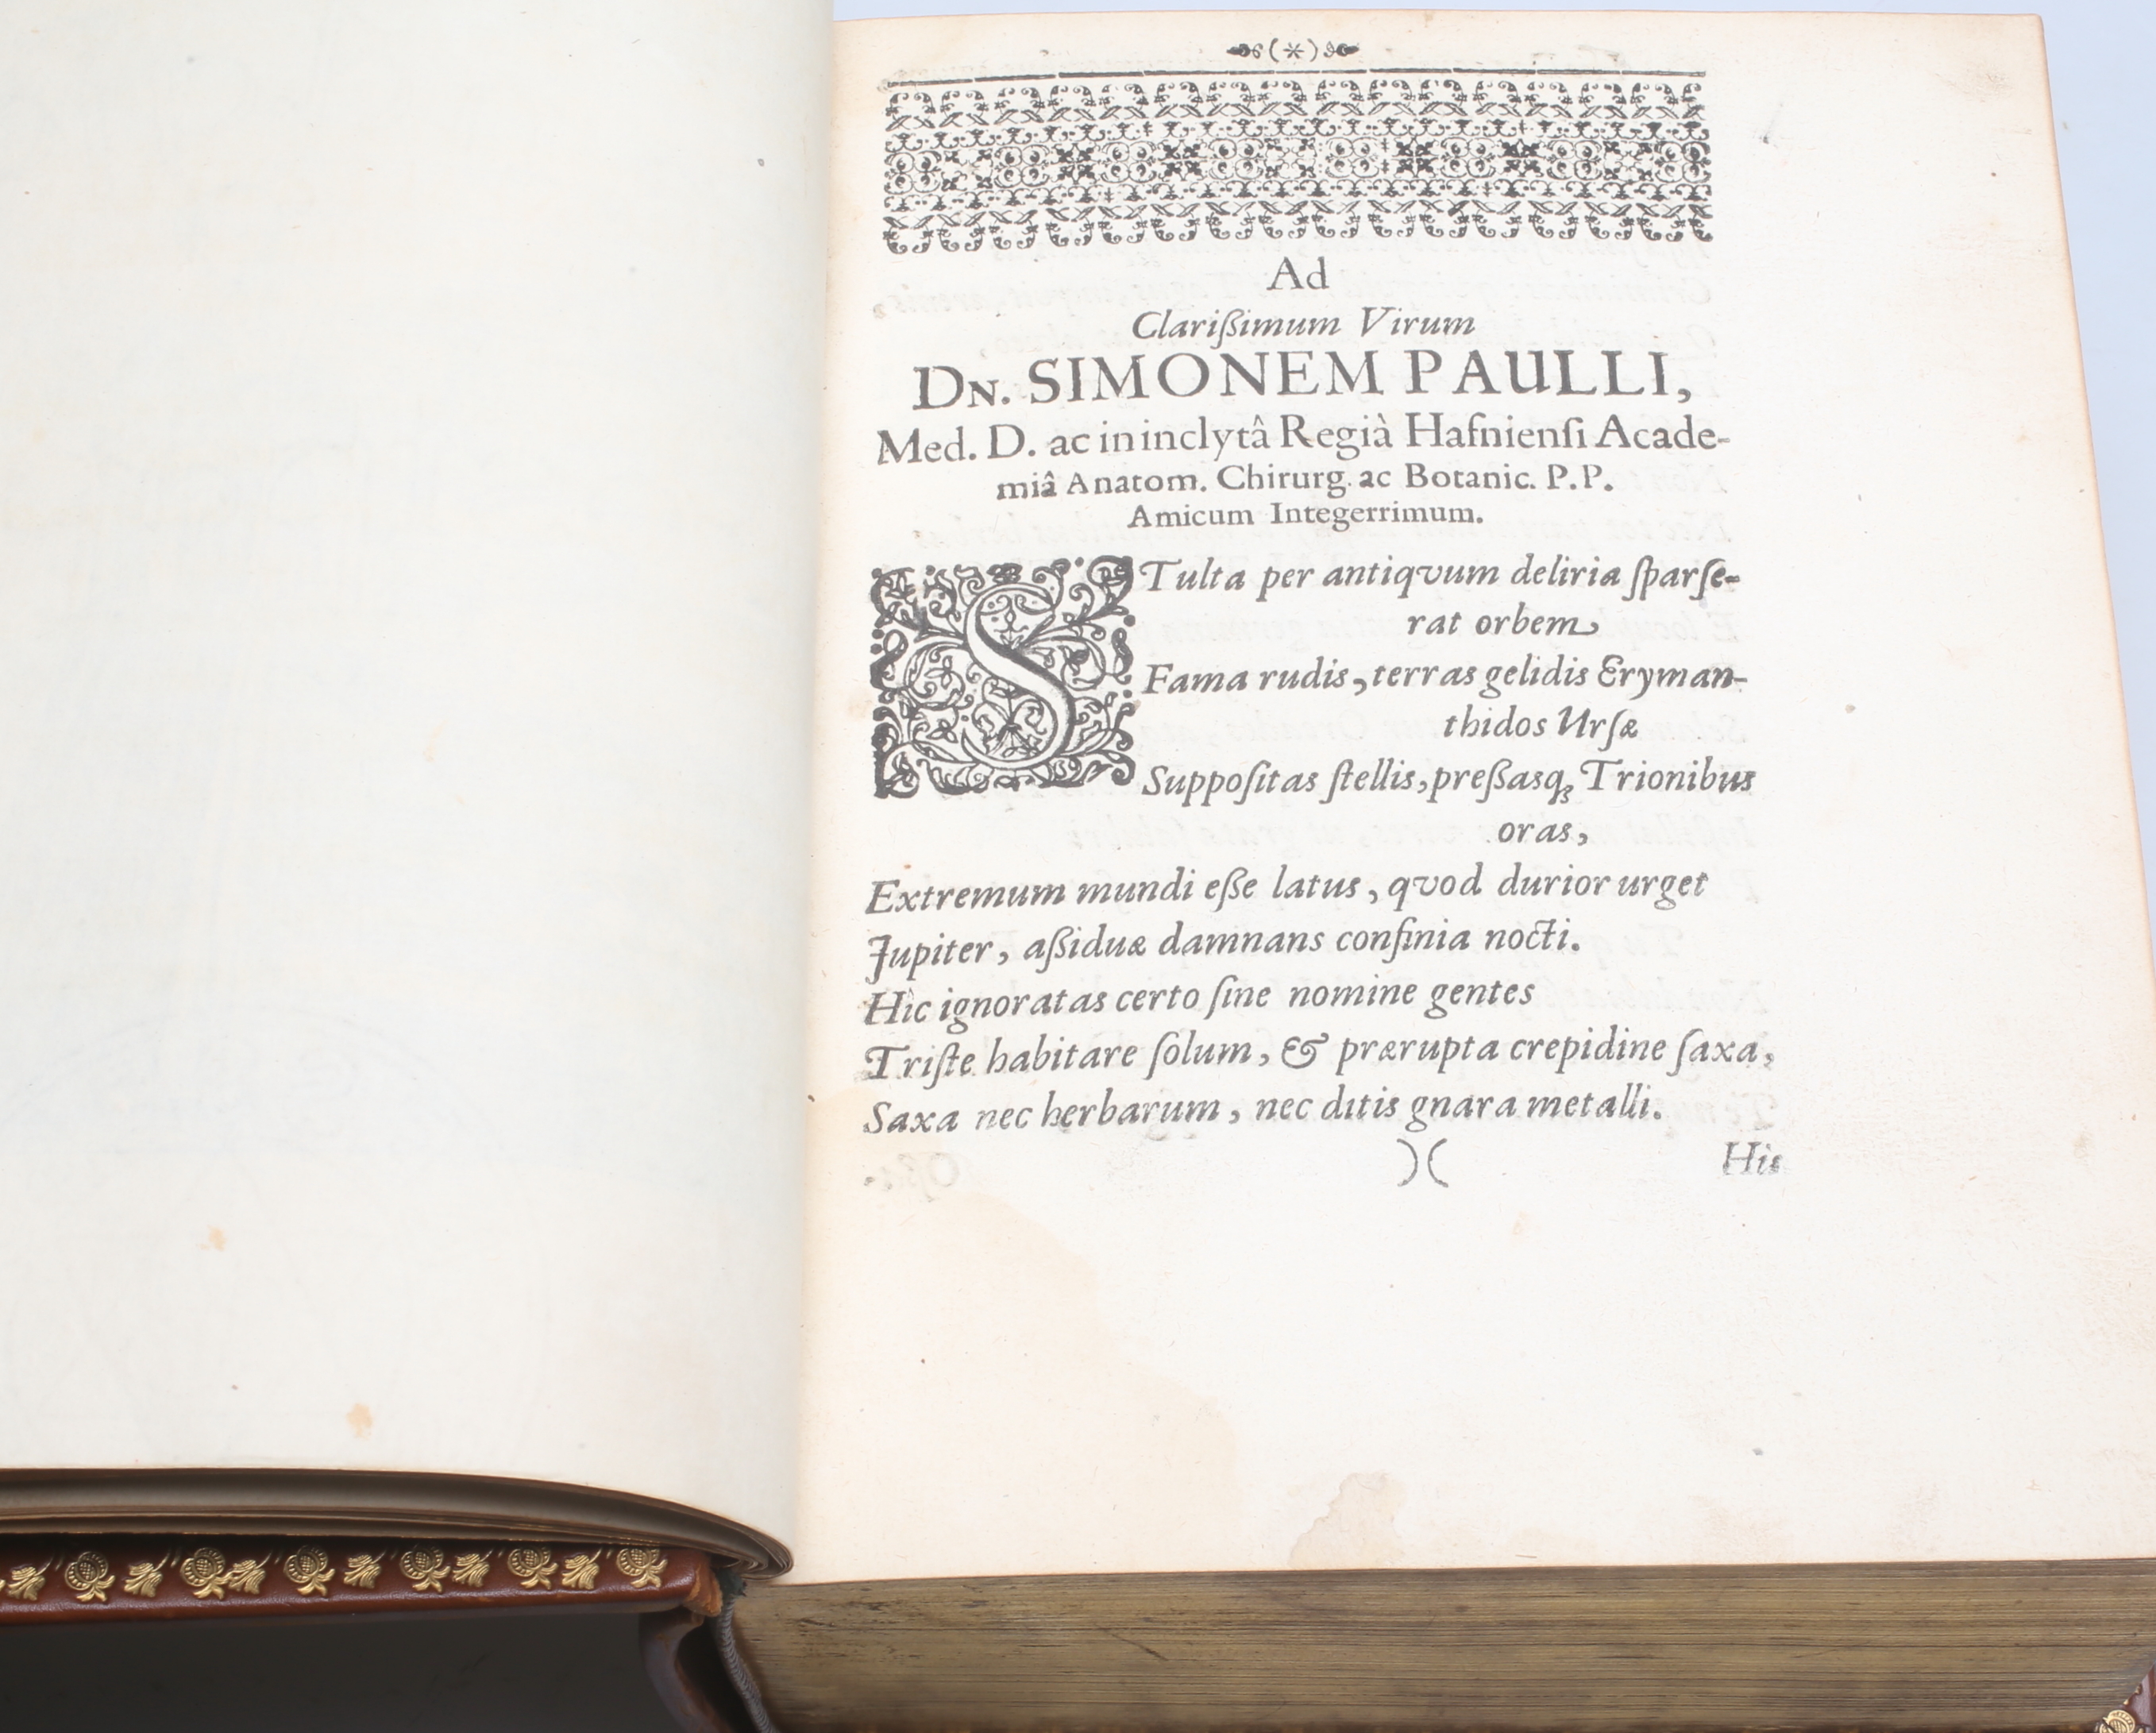 (*)
Ad
Clarißimum Virum
DN. SIMONEM PAULLI,
Med. D. ac in inclytâ Regià Hafnienſi Acade-
miâ Anatom. Chirurg. ac Botanic. P.P.
Amicum Integerrimum.
STulta per antiqvum deliria ſparſe-
rat orbem
Fama rudis, terras gelidis Eryman-
thidos Urſæ
Suppoſitas ſtellis, preßasq; Trionibus
oras,
Extremum mundi eße latus, qvod durior urget
Jupiter, aßiduæ damnans confinia nocti.
Hic ignoratas certo ſine nomine gentes
Triſte habitare ſolum, & prærupta crepidine ſaxa,
Saxa nec herbarum, nec ditis gnara metalli.
)( His